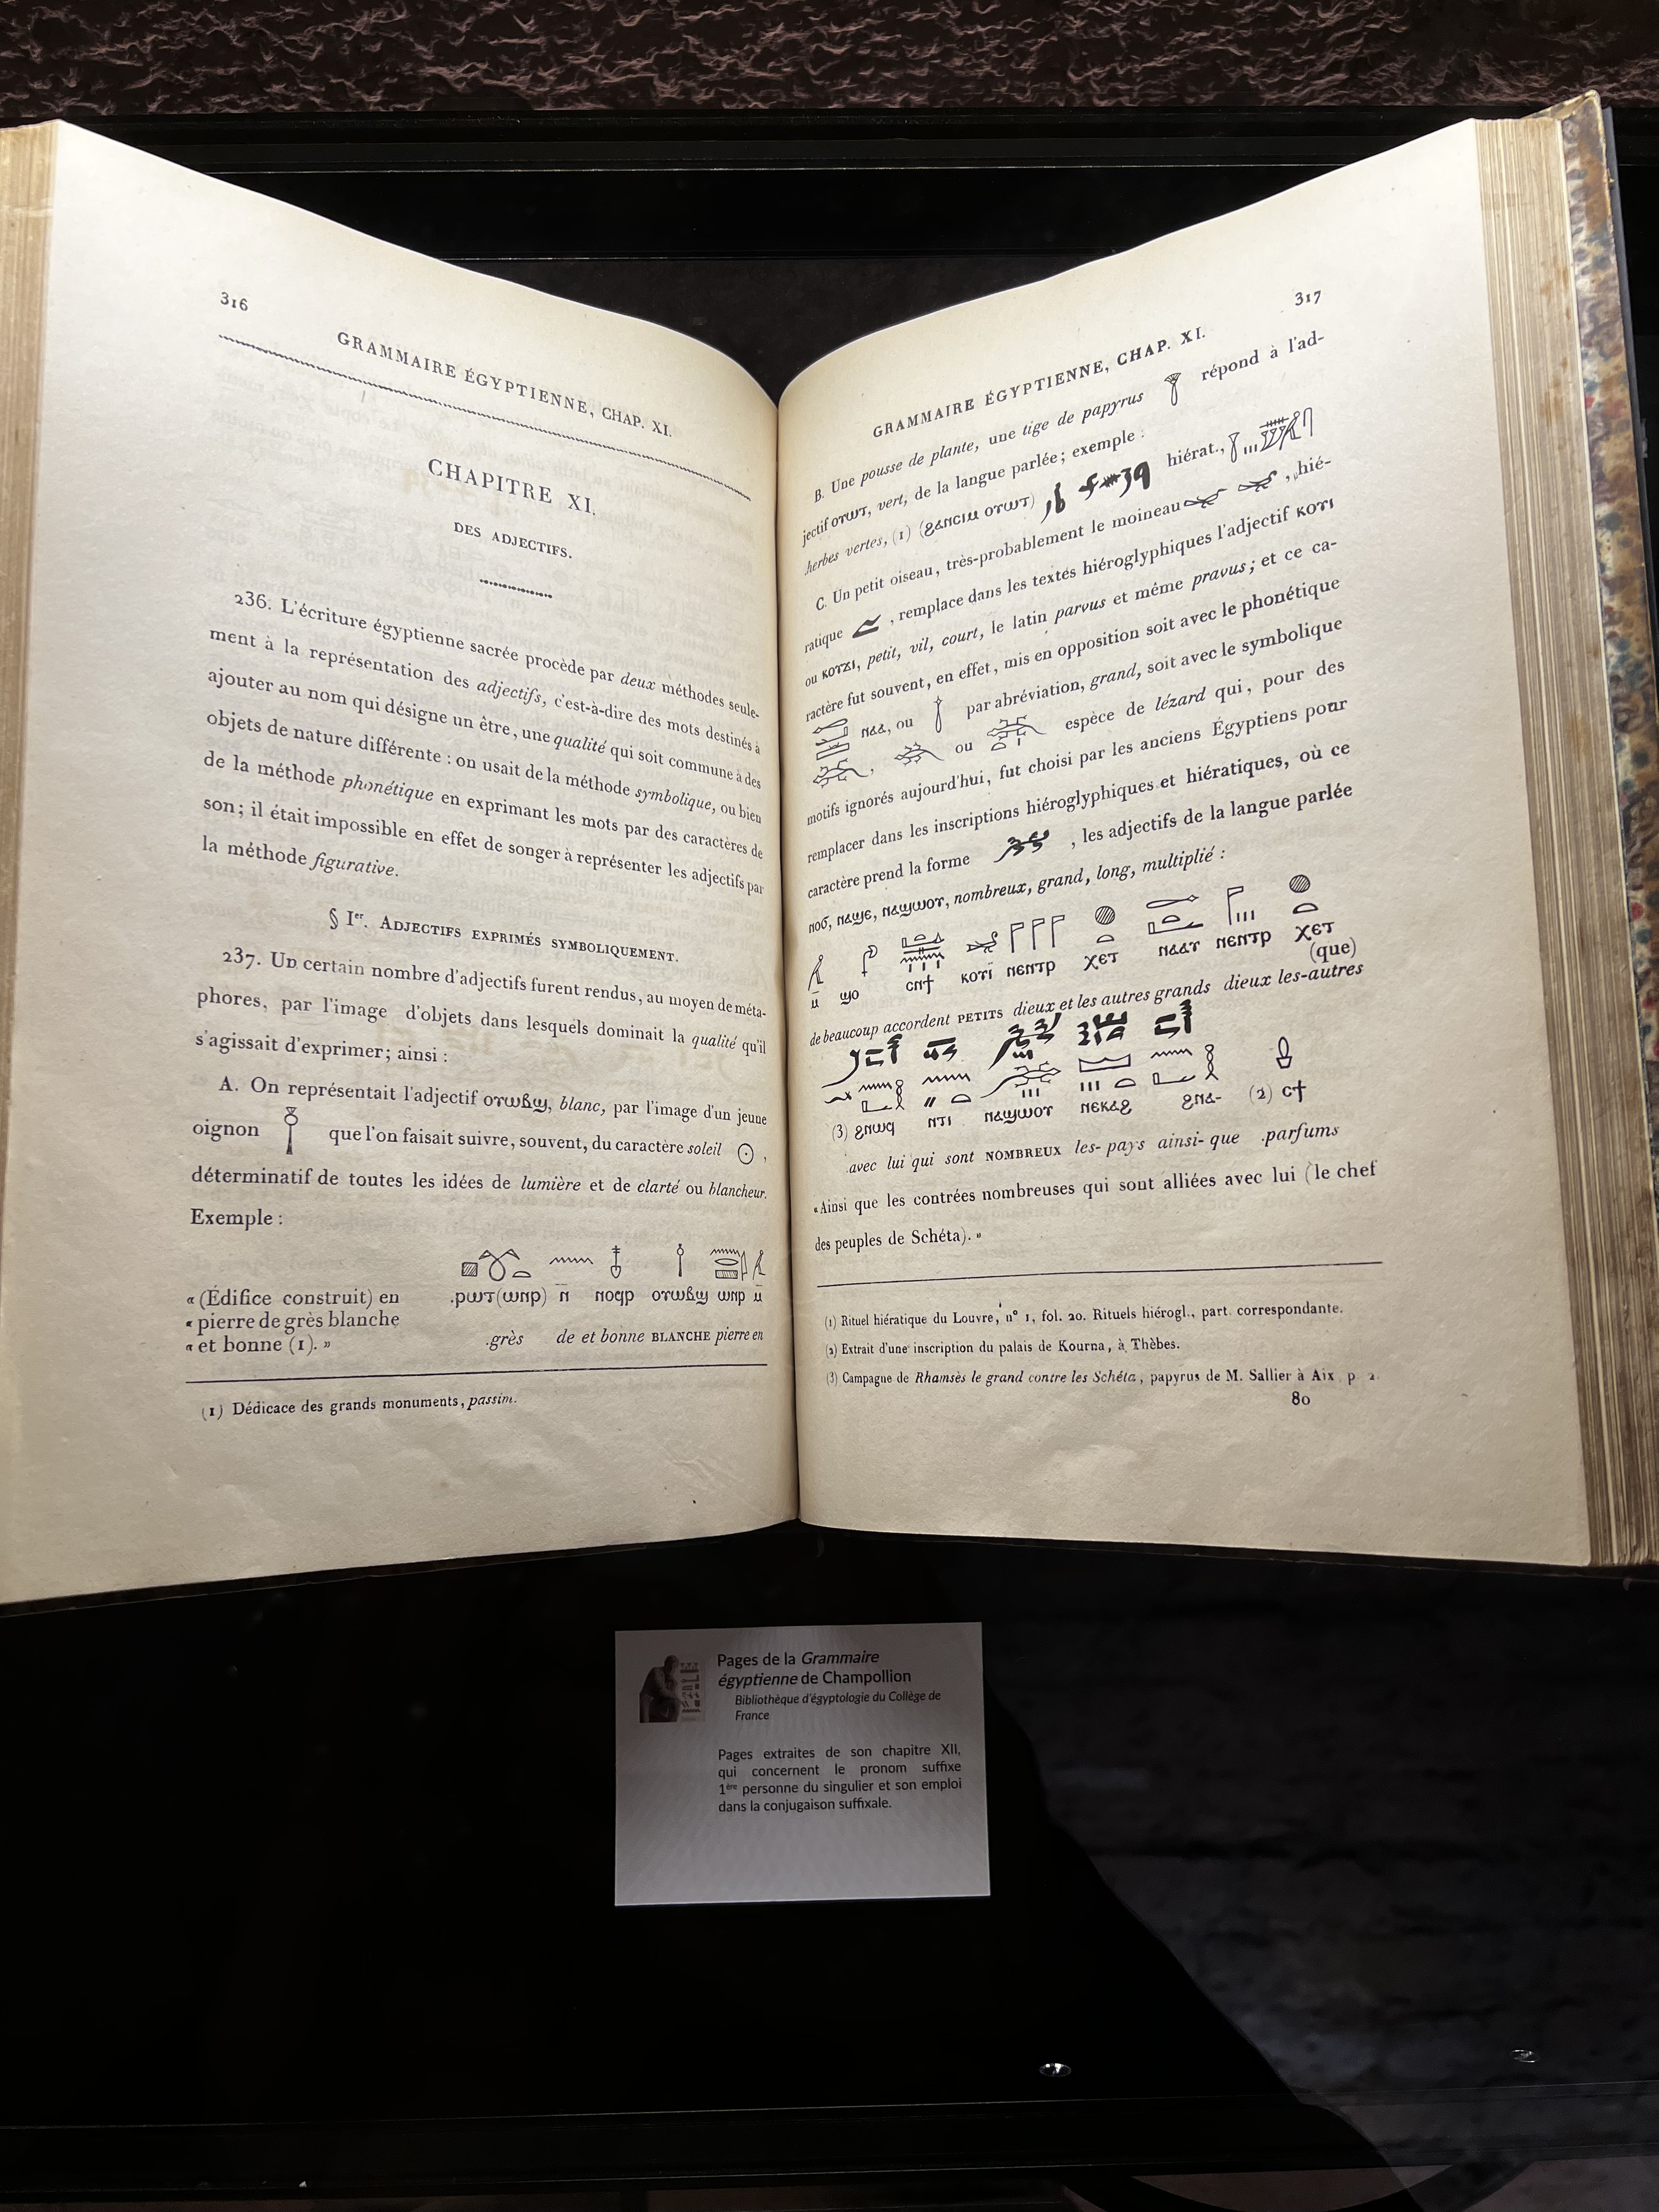 316
GRAMMAIRE ÉGYPTIENNE, CHAP. XI.
CHAPITRE XI.
DES ADJECTIFS.
236. L'écriture égyptienne sacrée procède par deux méthodes seule-
ment à la représentation des adjectifs, c'est-à-dire des mots destinés à
ajouter au nom qui désigne un être, une qualité qui soit commune à des
objets de nature différente : on usait de la méthode symbolique, ou bien
de la méthode phonétique en exprimant les mots par des caractères de
son; il était impossible en effet de songer à représenter les adjectifs par
la méthode figurative.
§ Ier. ADJECTIFS EXPRIMÉS SYMBOLIQUEMENT.
237. Un certain nombre d'adjectifs furent rendus, au moyen de méta-
phores, par l'image d'objets dans lesquels dominait la qualité qu'il
s'agissait d'exprimer; ainsi :
A. On représentait l'adjectif ⲟⲩⲱⲃϣ, blanc, par l'image d'un jeune
oignon que l'on faisait suivre, souvent, du caractère soleil ,
déterminatif de toutes les idées de lumière et de clarté ou blancheur.
Exemple :
« (Édifice construit) en
« pierre de grès blanche
« et bonne (1). »
.ⲣⲱⲧ(ⲱⲛⲣ) ⲛ̄ ⲛⲟϥⲣ ⲟⲩⲱⲃϣ ⲱⲛⲣ ⲙ̄
.grès de et bonne BLANCHE pierre en
(1) Dédicace des grands monuments, passim.
317
GRAMMAIRE ÉGYPTIENNE, CHAP. XI.
B. Une pousse de plante, une tige de papyrus répond à l'ad-
jectif ⲟⲩⲱⲧ, vert, de la langue parlée; exemple :
herbes vertes, (1) (ϩⲁⲛⲥⲓⲙ ⲟⲩⲱⲧ) hiérat.,
C. Un petit oiseau, très-probablement le moineau , hié-
ratique , remplace dans les textes hiéroglyphiques l'adjectif ⲕⲟⲩⲓ
ou ⲕⲟⲩϫⲓ, petit, vil, court, le latin parvus et même pravus; et ce ca-
ractère fut souvent, en effet, mis en opposition soit avec le phonétique
ⲛⲁⲁ, ou par abréviation, grand, soit avec le symbolique
, ou espèce de lézard qui, pour des
motifs ignorés aujourd'hui, fut choisi par les anciens Égyptiens pour
remplacer dans les inscriptions hiéroglyphiques et hiératiques, où ce
caractère prend la forme , les adjectifs de la langue parlée
ⲛⲟϭ, ⲛⲁϣⲉ, ⲛⲁϣⲱⲟⲩ, nombreux, grand, long, multiplié :
ⲙ̄ ϣⲟ ⲥⲛϯ ⲕⲟⲩⲓ ⲛⲉⲛⲧⲣ ⲭⲉⲧ ⲛⲁⲁⲩ ⲛⲉⲛⲧⲣ ⲭⲉⲧ
(que)
de beaucoup accordent PETITS dieux et les autres grands dieux les-autres
(3) ϩⲛⲱϥ ⲛⲧⲓ ⲛⲁϣⲱⲟⲩ ⲛⲉⲕⲁϩ ϩⲛⲁ- (2) ⲥϯ
.avec lui qui sont NOMBREUX les-pays ainsi-que .parfums
«Ainsi que les contrées nombreuses qui sont alliées avec lui (le chef
des peuples de Schéta). »
(1) Rituel hiératique du Louvre, n° 1, fol. 20. Rituels hiérogl., part. correspondante.
(2) Extrait d'une inscription du palais de Kourna, à Thèbes.
(3) Campagne de Rhamsès le grand contre les Schéta, papyrus de M. Sallier à Aix, p 2.
80
Pages de la Grammaire
égyptienne de Champollion
Bibliothèque d'égyptologie du Collège de
France
Pages extraites de son chapitre XII,
qui concernent le pronom suffixe
1ère personne du singulier et son emploi
dans la conjugaison suffixale.